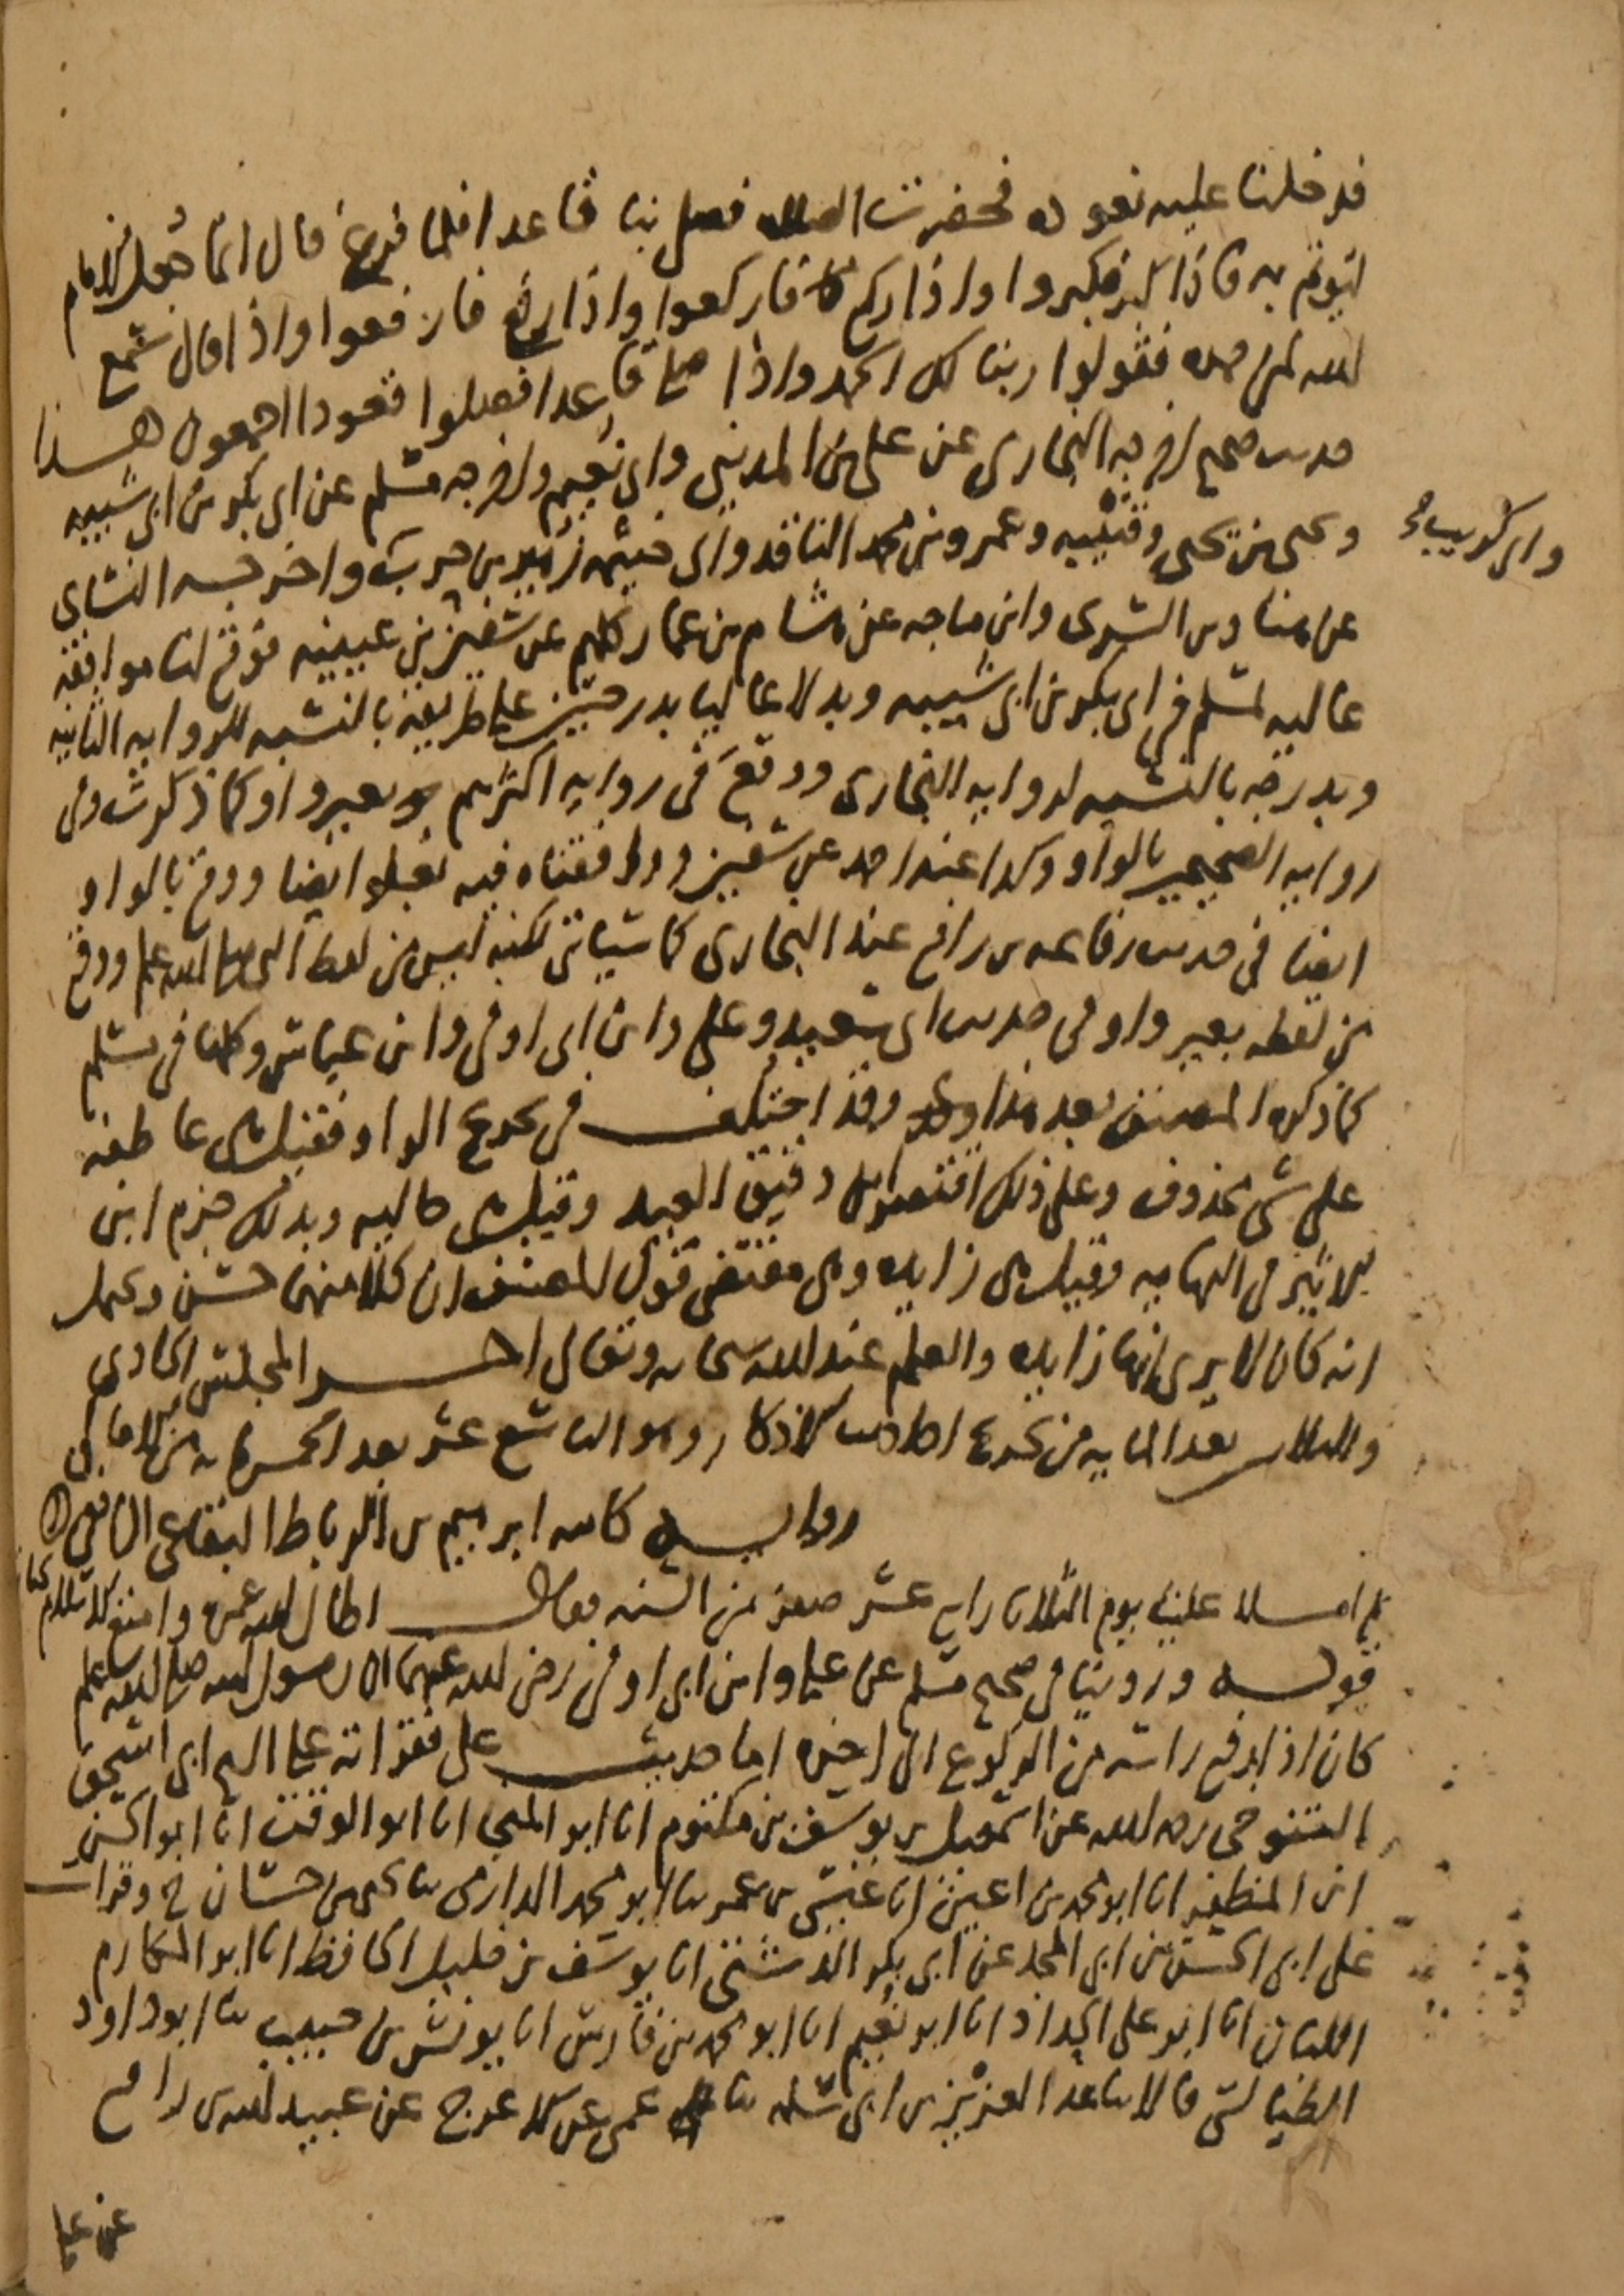 فدخلنا عليه نعوده فحضرت الصلاة فصلى بنا قاعدا فلما فرغ قال انما جعل الامام
ليوتم به فاذا كبر فكبروا واذا ركع فاركعوا واذا رفع فارفعوا واذا قال سمع
الله لمن حمده فقولوا ربنا لك الحمد واذا صلى قاعدا فصلوا قعودا اجمعون هذا
حديث صحيح اخرجه البخارى عن على بن المدينى وابى نعيم واخرجه مسلم عن ابى بكر بن ابى شيبه
ويحيى بن يحيى وقتيبه وعمرو بن محمد الناقد وابى خيثمه زهير بن حرب واخرجه النساى
وابى كريب صح
عن هناد بن السرى وابن ماجه عن هشام بن عمار كلهم عن سفين بن عيينه فوقع لنا موافقه
عاليه لمسلم فى ابى بكر بن ابى شيبه وبدلا عاليا بدرجتين على طريقه بالنسبه للروايه الثانيه
وبدرجه بالنسبه لروايه البخارى ووقع فى روايه اكثرهم بغير واو كما ذكرت وفى
روايه الصحيحين بالواو وكذا عند احمد عن سفين ووافقناه فيه بعلو ايضا ووقع بالواو
ايضا فى حديث رفاعه بن رافع عند البخارى كما سياتى لكنه ليس من لفظ النبى صلى الله عليه وسلم ووقع
من لفظه بغير واو فى حديث ابى سعيد وعلى وابن ابى اوفى وابن عباس وكلها فى مسلم
كما ذكره المصنف بعد هذا وقد اختلف فى تخريج الواو فقيل هى عاطفه
على شى محذوف وعلى ذلك اقتصر ابن دقيق العيد وقيل هى حاليه وبذلك جزم ابن
الاثير فى النهايه وقيل هى زايده وهى مقتضى قول المصنف ان كلا منهما حسن ويحتمل
انه كان لا يرى انها زايده والعلم عند الله سبحانه وتعالى اخر المجلس الحادى
والثلاثين بعد المايه من تخريج احاديث الاذكار وهو التاسع عشر بعد الخمسمايه من الامالى
روايه كاتبه ابرهيم بن الرباط البقاعى الشافعى
ثم املا علينا يوم الثلاثا رابع عشر صفر من السنه فقال اطال الله عمره وامتع الاسلام بحياته
قوله وروينا فى صحيح مسلم عن على وابن ابى اوفى رضى الله عنهما ان رسول الله صلى الله عليه وسلم
كان اذا رفع راسه من الركوع الى اخره اما حديث على فقراته على الشيخ ابى اسحق
التنوخى رحمه الله عن اسمعيل بن يوسف بن مكتوم انا ابو المنجى انا ابو الوقت انا ابو الحسن
ابن المظفر انا ابو محمد بن اعين انا عيسى بن عمر ثنا ابو محمد الدارمى ثنا يحيى بن حسان ح وقرات
على ابى الحسن بن ابى المجد عن ابى بكر الدشتى انا يوسف بن خليل الحافظ انا ابو المكارم
اللبان انا ابو على الحداد انا ابو نعيم انا ابو محمد بن فارس انا يونس بن حبيب ثنا ابو داود
الطيالسى قالا ثنا عبد العزيز بن ابى سلمه ثنا عمى عن الاعرج عن عبيد الله بن ابى رافع
عن على